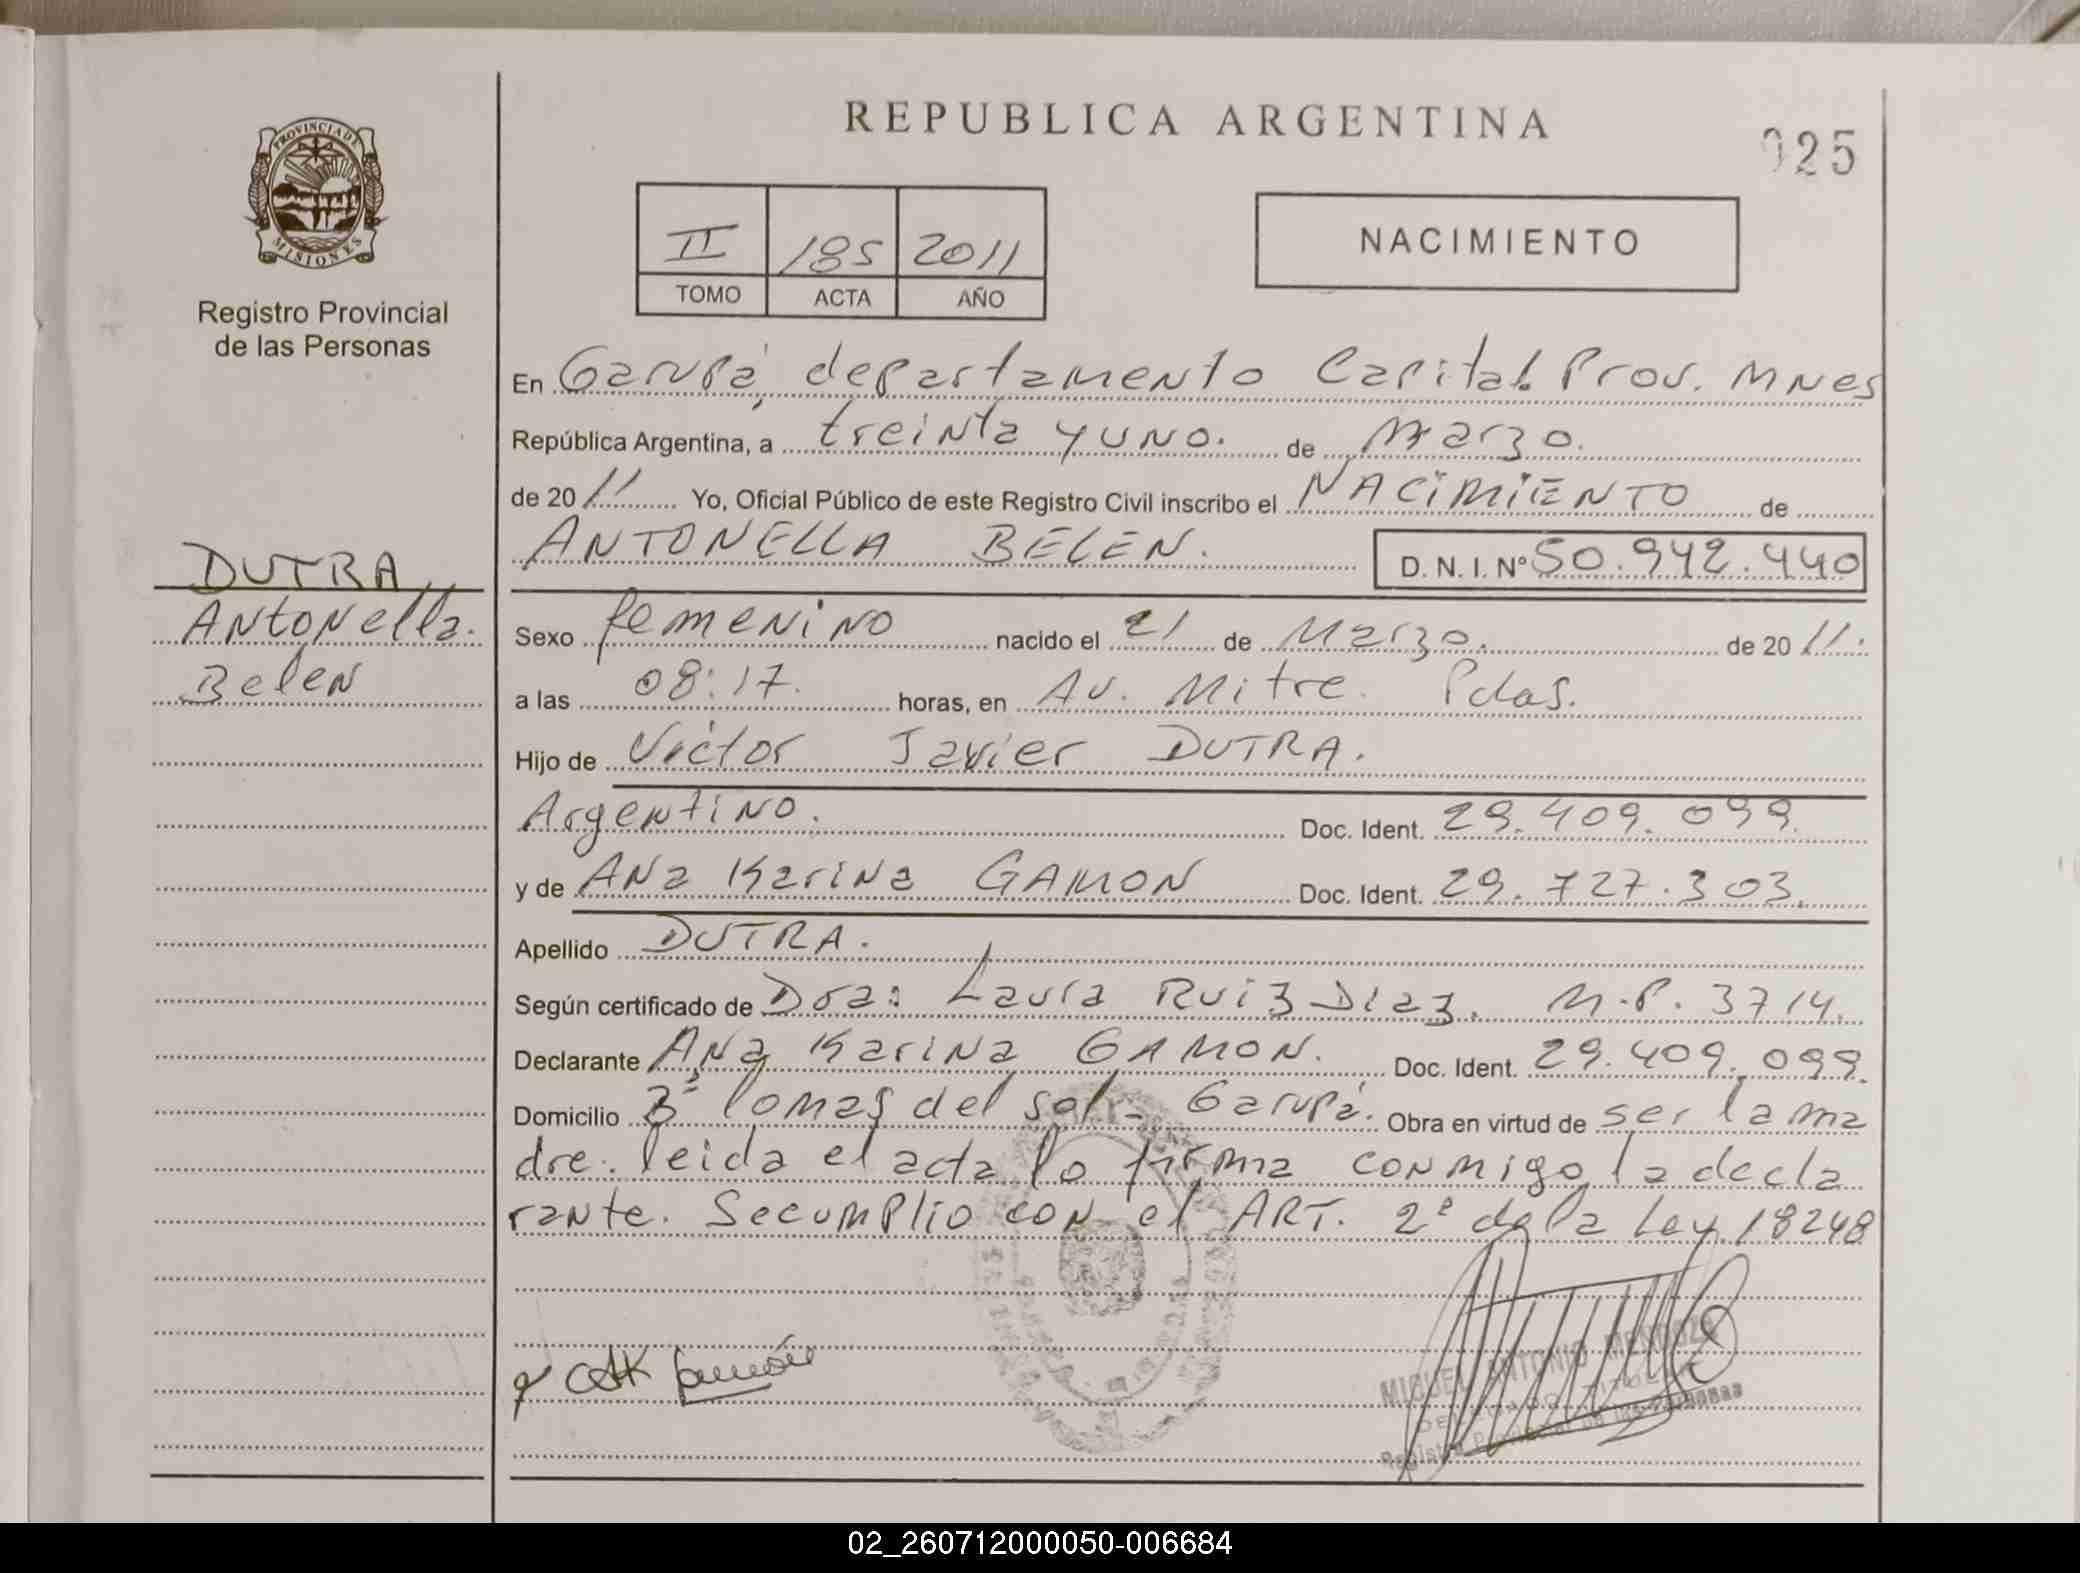 REPUBLICA ARGENTINA
025
PROVINCIA DE
MISIONES
Registro Provincial
de las Personas
II 185 2011
TOMO ACTA AÑO
NACIMIENTO
En Garupá, departamento Capital. Prov. MNes
República Argentina, a treinta y uno. de Marzo.
de 2011 Yo, Oficial Público de este Registro Civil inscribo el NACIMIENTO de
ANTONELLA BELEN. D. N. I. Nº 50.942.440
DUTRA
Antonella.
Belen
Sexo femenino nacido el 21 de Marzo. de 2011.
a las 08:17. horas, en Av. Mitre. Pdas.
Hijo de Victor Javier DUTRA.
Argentino. Doc. Ident. 29.409.099.
y de Ana Karina GAMON Doc. Ident. 29.727.303.
Apellido DUTRA.
Según certificado de Dra: Laura Ruiz Diaz. M.P. 3714.
Declarante Ana Karina GAMON. Doc. Ident. 29.409.099.
Domicilio Bº lomas del sol - Garupá. Obra en virtud de ser la ma
dre. leida el acta lo firma conmigo la decla
rante. Se cumplio con el ART. 2º de la Ley. 18248
MIGUEL ANTONIO MENDOZA
DELEGADO TITULAR
Registro Provincial de las Personas
02_260712000050-006684